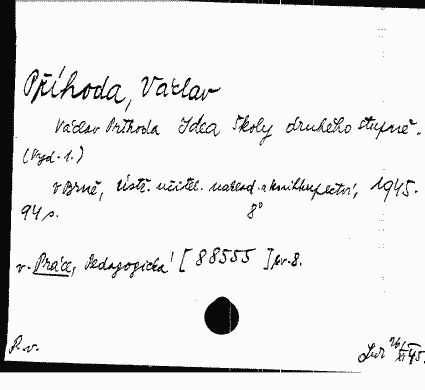 Příhoda, Václav
Václav Příhoda Idea školy druhého stupně.
(Vyd. 1.)
V Brně, Ústř. učitel. naklad. a knihkupectví, 1945.
94 s. 8°
v. Práce, Pedagogická [88555] sv. 8.
P. v. 26/XI 45.